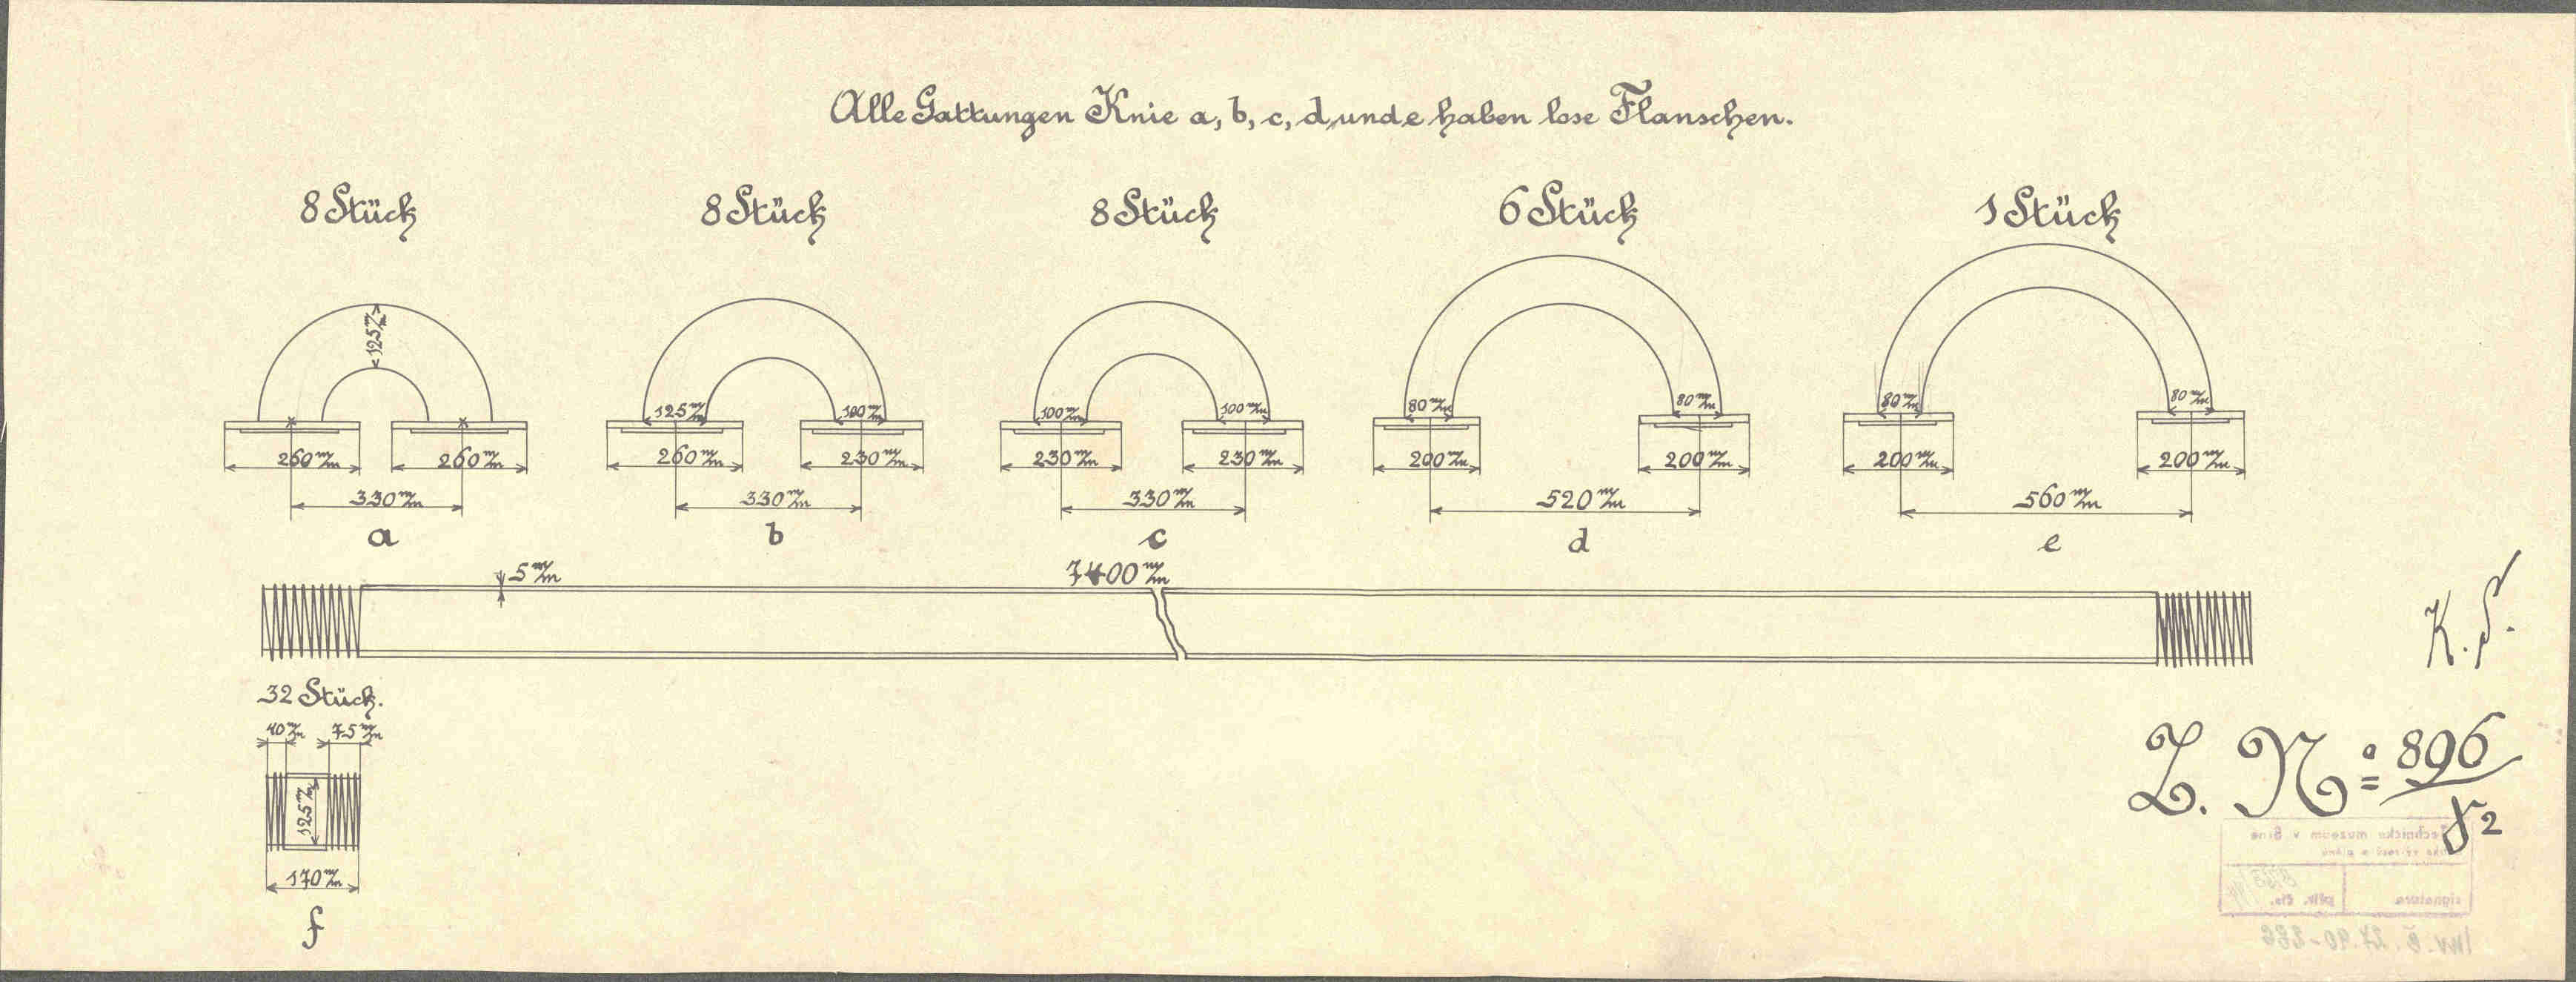 Alle Gattungen Knie a, b, c, d, und e haben lose Flanschen.
8 Stück
8 Stück
8 Stück
6 Stück
1 Stück
125 m/m
125 m/m
100 m/m
100 m/m
100 m/m
80 m/m
80 m/m
80 m/m
80 m/m
260 m/m
260 m/m
260 m/m
230 m/m
230 m/m
230 m/m
200 m/m
200 m/m
200 m/m
200 m/m
330 m/m
330 m/m
330 m/m
520 m/m
560 m/m
a
b
c
d
e
5 m/m
7400 m/m
32 Stück.
40 m/m
75 m/m
125 m/m
170 m/m
f
Z. No: 896
γ2
Technické muzeum v Brně
signatura
přír. čís.
Inv. č.